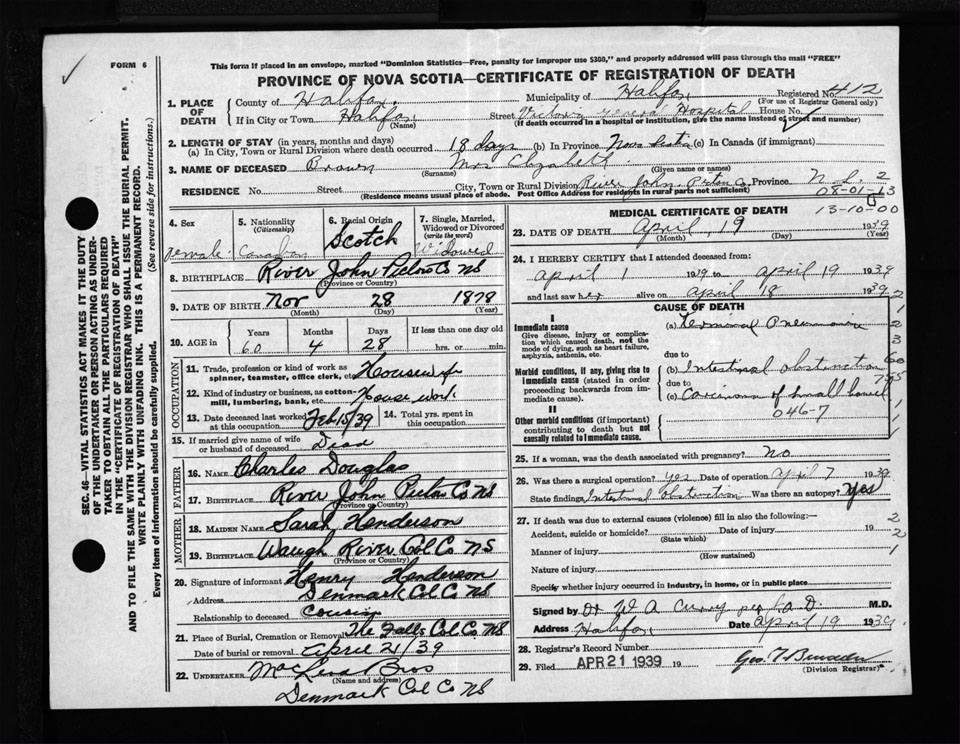 FORM 6
This form if placed in an envelope, marked "Dominion Statistics—Free, penalty for improper use $300," and properly addressed will pass through the mail "FREE"
PROVINCE OF NOVA SCOTIA—CERTIFICATE OF REGISTRATION OF DEATH
Registered No. 412
(For use of Registrar General only)
1. PLACE OF DEATH
County of Halifax Municipality of Halifax
If in City or Town Halifax (Name) Street Victoria General Hospital House No.
(If death occurred in a hospital or institution, give the name instead of street and number)
2. LENGTH OF STAY (in years, months and days)
(a) In City, Town or Rural Division where death occurred 18 days (b) In Province Nova Scotia (c) In Canada (if immigrant)
3. NAME OF DECEASED Brown Mrs Elizabeth
(Surname) (Given name or names)
RESIDENCE No. Street City, Town or Rural Division River John, Pictou Co. Province N.S. 2
(Residence means usual place of abode. Post Office Address for residents in rural parts not sufficient)
08-01-13
13-10-00
4. Sex Female
5. Nationality (Citizenship) Canadian
6. Racial Origin Scotch
7. Single, Married, Widowed or Divorced (write the word) Widowed
8. BIRTHPLACE River John Pictou Co NS
(Province or Country)
9. DATE OF BIRTH Nov 28 1878
(Month) (Day) (Year)
10. AGE in Years Months Days If less than one day old
60 4 28 hrs. or min.
OCCUPATION
11. Trade, profession or kind of work as spinner, teamster, office clerk, etc. Housewife
12. Kind of industry or business, as cotton-mill, lumbering, bank, etc. House work
13. Date deceased last worked at this occupation Feb 15/39
14. Total yrs. spent in this occupation
15. If married give name of wife or husband of deceased Dead
FATHER
16. NAME Charles Douglas
17. BIRTHPLACE River John Pictou Co NS
(Province or Country)
MOTHER
18. MAIDEN NAME Sarah Henderson
19. BIRTHPLACE Waugh River Col Co NS
(Province or Country)
20. Signature of informant Henry Henderson
Address Denmark Col Co NS
Relationship to deceased Cousin
21. Place of Burial, Cremation or Removal The Falls Col Co NS
Date of burial or removal April 21/39
22. UNDERTAKER Bros
(Name and address)
Denmark Col Co NS
MEDICAL CERTIFICATE OF DEATH
23. DATE OF DEATH April, 19 1939
(Month) (Day) (Year)
24. I HEREBY CERTIFY that I attended deceased from:
April 1 1939 to April 19 1939
and last saw her alive on April 18 1939
CAUSE OF DEATH
I
Immediate cause
Give disease, injury or complication which caused death, not the mode of dying, such as heart failure, asphyxia, asthenia, etc.
(a) Terminal Pneumonia
due to
Morbid conditions, if any, giving rise to immediate cause (stated in order proceeding backwards from immediate cause).
(b) Intestinal obstruction
due to
(c) Carcinoma of small bowel
046-7
II
Other morbid conditions (if important) contributing to death but not causally related to immediate cause.
25. If a woman, was the death associated with pregnancy? No
26. Was there a surgery? yes Date of operation April 7 1939
State findings Intestinal obstruction Was there an autopsy? Yes
27. If death was due to external causes (violence) fill in also the following:—
Accident, suicide or homicide? Date of injury 19
(State which)
Manner of injury
(How sustained)
Nature of injury
Specify whether injury occurred in industry, in home, or in public place
Signed by Dr W A Curry per M.D.
Address Halifax Date April 19 1939
28. Registrar's Record Number
29. Filed APR 21 1939 19 Geo. T.
(Division Registrar)
SEC. 46—VITAL STATISTICS ACT MAKES IT THE DUTY
OF THE UNDERTAKER OR PERSON ACTING AS UNDER-
TAKER TO OBTAIN ALL THE PARTICULARS REQUIRED
IN THE "CERTIFICATE OF REGISTRATION OF DEATH"
AND TO FILE THE SAME WITH THE DIVISION REGISTRAR WHO SHALL ISSUE THE BURIAL PERMIT.
WRITE PLAINLY WITH UNFADING INK. THIS IS A PERMANENT RECORD.
Every item of information should be carefully supplied. (See reverse side for instructions.)